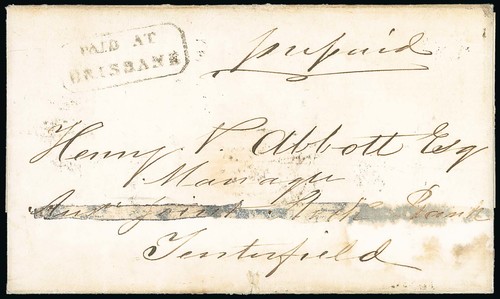 PAID AT
BRISBANE
prepaid
Henry V. Abbott Esq
Manager
Aust Joint Stock Bank
Tenterfield